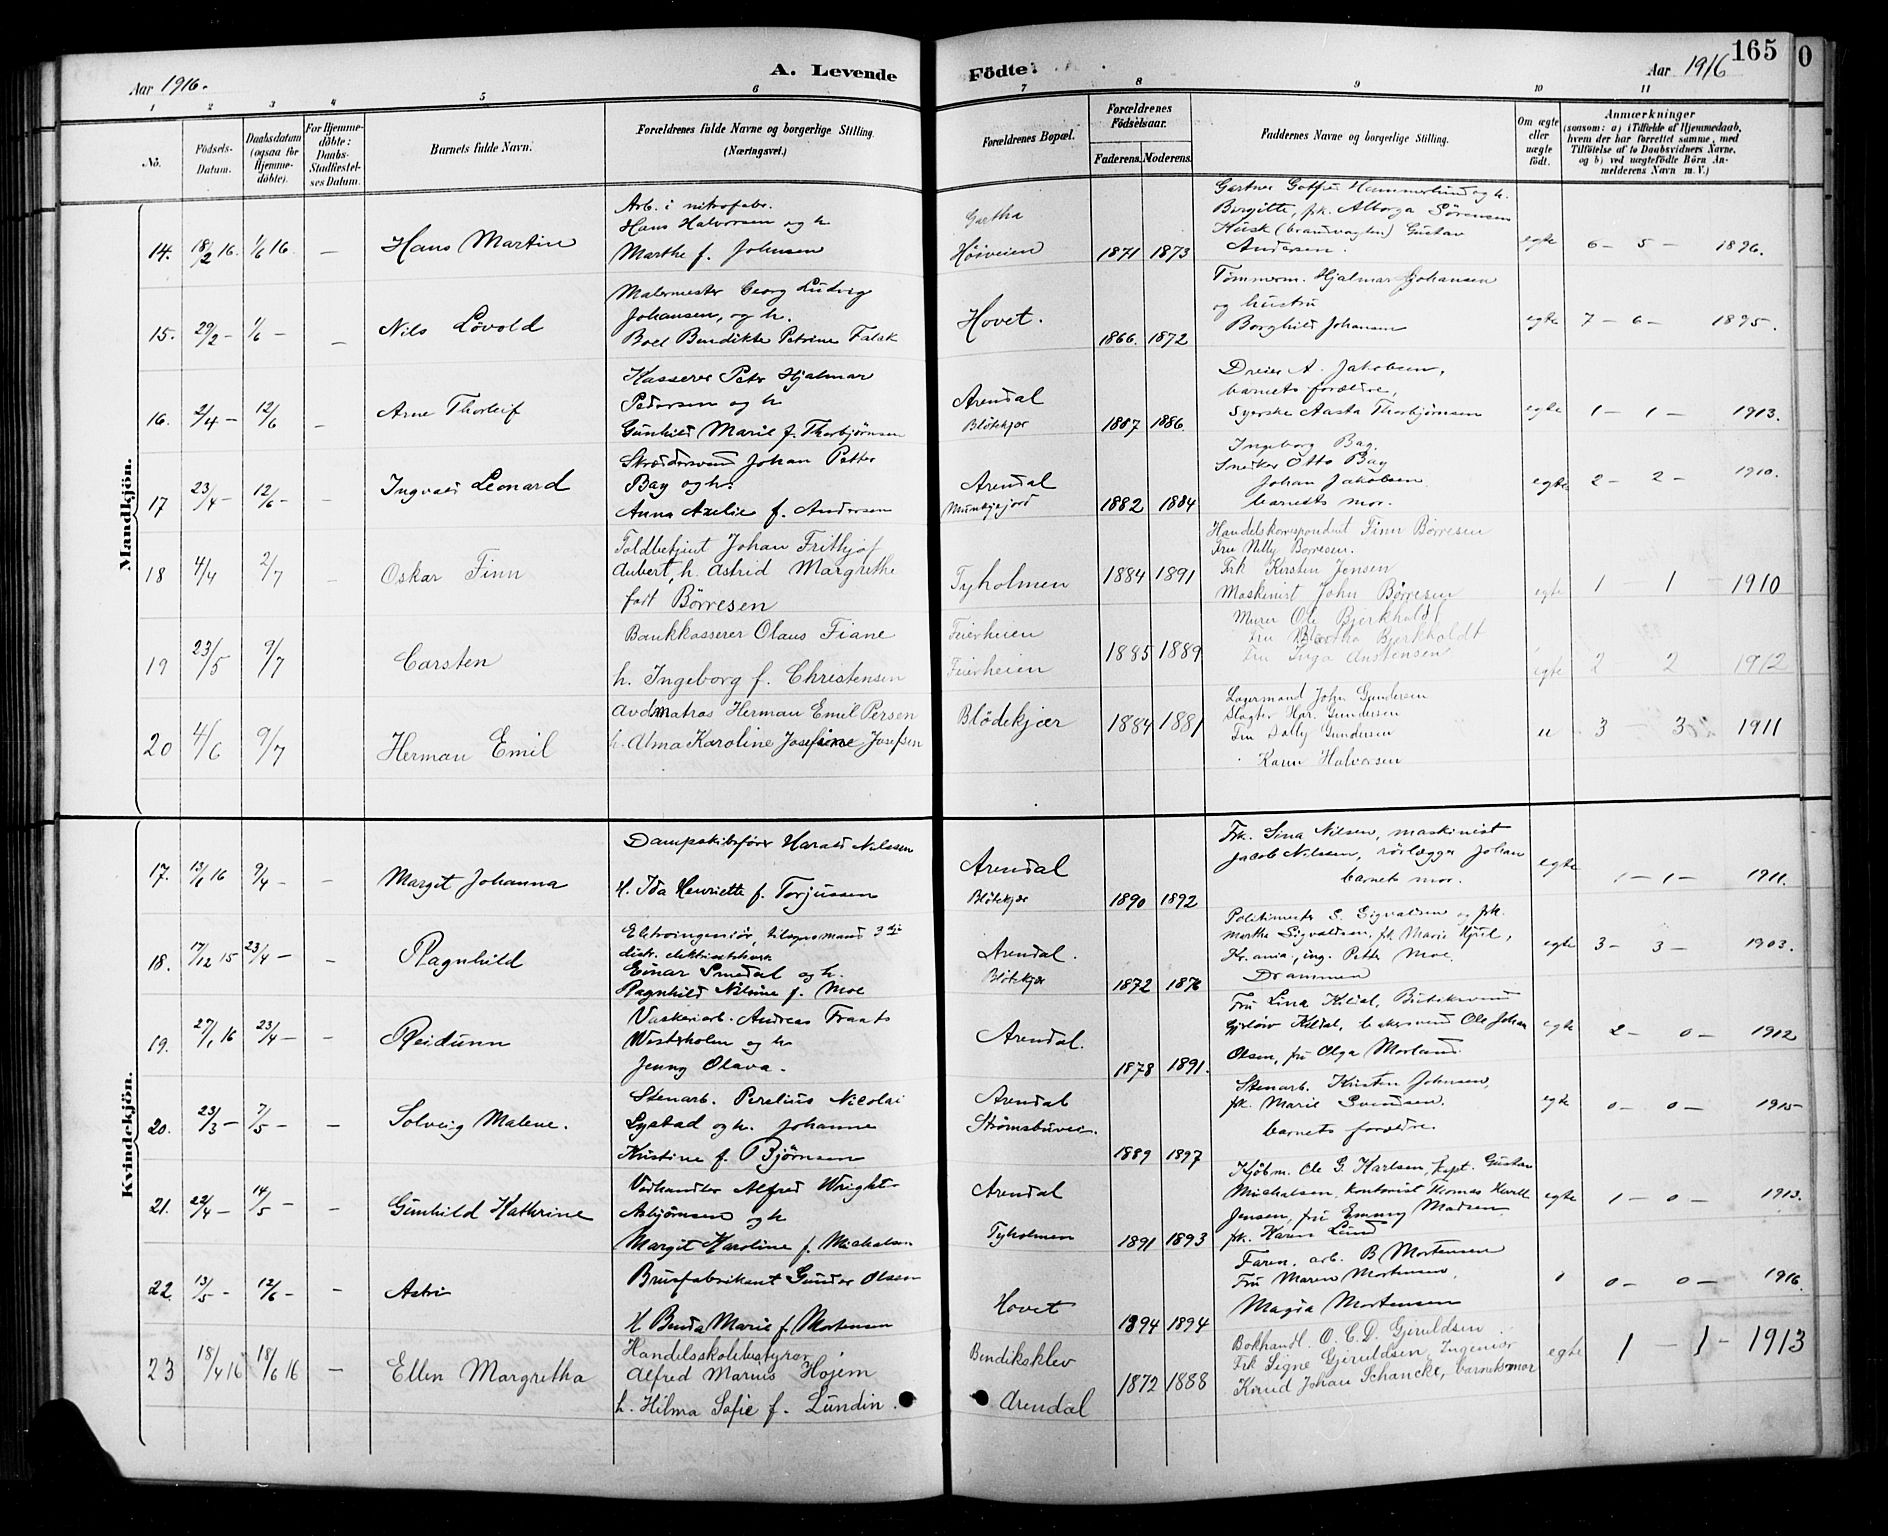 165
0
Aar 1916.
A. Levende
Födte.
Aar 1916
1 2 3 4 5 6 7 8 9 10 11
No.
Födsels-Datum.
Daabsdatum (ogsaa for Hjemme-döbte).
For Hjemme-döbte: Daabs-Stadfæstel-ses Datum.
Barnets fulde Navn.
Forældrenes fulde Navne og borgerlige Stilling. (Næringsvei.)
Forældrenes Bopæl.
Forældrenes Födselsaar.
Faderens. Moderens.
Faddernes Navne og borgerlige Stilling.
Om ægte eller uægte födt.
Anmærkninger
(saasom: a) i Tilfælde af Hjemmedaab, hvem der har forrettet samme, med Tilföielse af to Daabsvidners Navne, og b) ved uægtefödte Börn An-melderens Navn m. V.)
Mandkjön.
14. 18/2 16. 1/6 16. – Hans Martin
Arb. i nitrofabr.
Hans Halvorsen og h.
Marthe f. Johnsen
Høiveien
1871 1873
Birgitte, frk. Alborga Sörensen
Andersen.
egte 6 – 5 – 1896.
15. 29/2 – 1/6 – – Nils Lövold
Malermester Georg Ludvig
Johansen, og h.
Boel Bendikte Petrine Falck
Hovet.
1866. 1872
Tömmerm. Hjalmar Johansen
og hustru
Borghild Johansen
egte 7 – 6 – 1895.
16. 2/4 – 12/6 – Arne Thorleif
Kasserer Peter Hjalmar
Pedersen og h
Gunhild Marie f. Thorbjørnsen
Arendal
Blötekjær
1887 1886.
Dreier A. Jakobsen,
barnets forældre,
Syerske Aasta Thorbjørnsen
egte 1 – 1 – 1913.
17 23/4 – 12/6 – – Ingvald Leonard
Johan Petter
Bay og h.
Anna Axelie f. Andersen
Arendal
1882 1884
Ingeborg Bay.
Snekker Otto Bay
Johan Jakobsen.
barnets mor.
egte 2 – 2 – 1910.
18 4/4 2/7 – Oskar Finn
Toldbetjent Johan Frithjof
Aubert, h. Astrid Margrethe
født Börresen
Tyholmen
1884 1891
Handelskorrespondent Finn Börresen
Fru Nelly Borresen.
Frk Kirsten Jensen
Maskinist John Börresen
egte 1 – 1 1910
19 23/5 9/7 Carsten
Bankkasserer Olaus Fiane
h. Ingeborg f. Christensen
Feierheien
Feierheien
1885 1889
Murer Ole Bjerkholdt
Fru Bertha Bjerkholdt
Fru Inga Anstensen
egte 2 – 2 1912
20 4/6 9/7 Herman Emil
Avdmatros Herman Emil Persen
h. Alma Karoline Josefine Josefsen
Blödekjær
1884 1881
Lagermand John Gundersen
Slagter Har. Gundersen
Fru Dolly Gundersen
Karen Halvorsen
u 3 – 3 1911
Kvindekjön.
17. 13/1 16 9/4 – – Margit Johanna
Dampskibsförer Harald Nilssen
H. Ida Henriette f. Torjussen
Arendal
Blötekjær
1890 1892
Frk. Sina Nilsen, maskinist
Jacob Nilssen, rörlægger Johan
barnets mor.
egte 1 – 1 – 1911.
18. 17/12 15 23/4 – – Ragnhild
Elktroingeniör, tilsynsmand 3die
distr. elektricitetsv.
Einar Smedal og h.
Ragnhild Nilsine f. Moe
Arendal.
Blötekjær
1872 1876
Politimester S. Sigvaldsen og frk.
Marthe Sigvaldsen, frk Marie Kjul,
Kr.ania, ing. Petter Moe.
Drammen
egte 3 – 3 – 1903.
19. 27/1 16 23/4 – – Reidunn
Andreas
Westerholm og h
Jenny Olava.
Arendal.
1878 1891.
Fru Lina Kildal,
Kildal, bakersvend Ole Johan
Olsen, fru Olga Morland.
egte 2 – 0 – 1912
20. 23/3 – 7/5 – – Solveig Malene.
Stenarb. Perelius Nicolai
Lystad og h. Johanne
Kristine f. Bjørnsen
Arendal
Strømsbuvei.
1889 1897
Stenarb. Kristen Johnsen,
frk. Marie Svendsen.
barnets forældre.
egte 0 – 0 – 1915
21. 22/4 – 14/5 – – Gunhild Kathrine
Vedhandler Alfred Wright
Asbjørnsen og h
Margit Karoline f. Michalsen
Arendal
Tyholmen
1891 1893
Kjöbm. Ole G. Karlsen, kapt. Gustav
Michalsen, kontorist Thomas
Jensen, fru Emmy Madsen
frk. Karen Lund
egte 1 – 0 – 1913.
22. 13/5 – 12/6 – – Astri
Brusfabrikant Gunder Olsen
H Benda Marie f. Mortensen
Hovet
1894 1894
Faren. arb. B Mortensen
Fru Maren Mortensen,
Magda Mortensen
0 – 0 – 1916
23 18/4 16 18/6 16 – Ellen Margretha
Handelsskolebestyrer
Alfred Marius Höjem
h. Hilma Sofie f. Lundin.
Bendiksklev
Arendal
1872 1888
Bokhandl. O. C. D. Gjeruldsen
Frk Signe Gjeruldsen, Ingeniör
Knud Johan Schancke, barnets mor
egte 1 – 1 – 1913